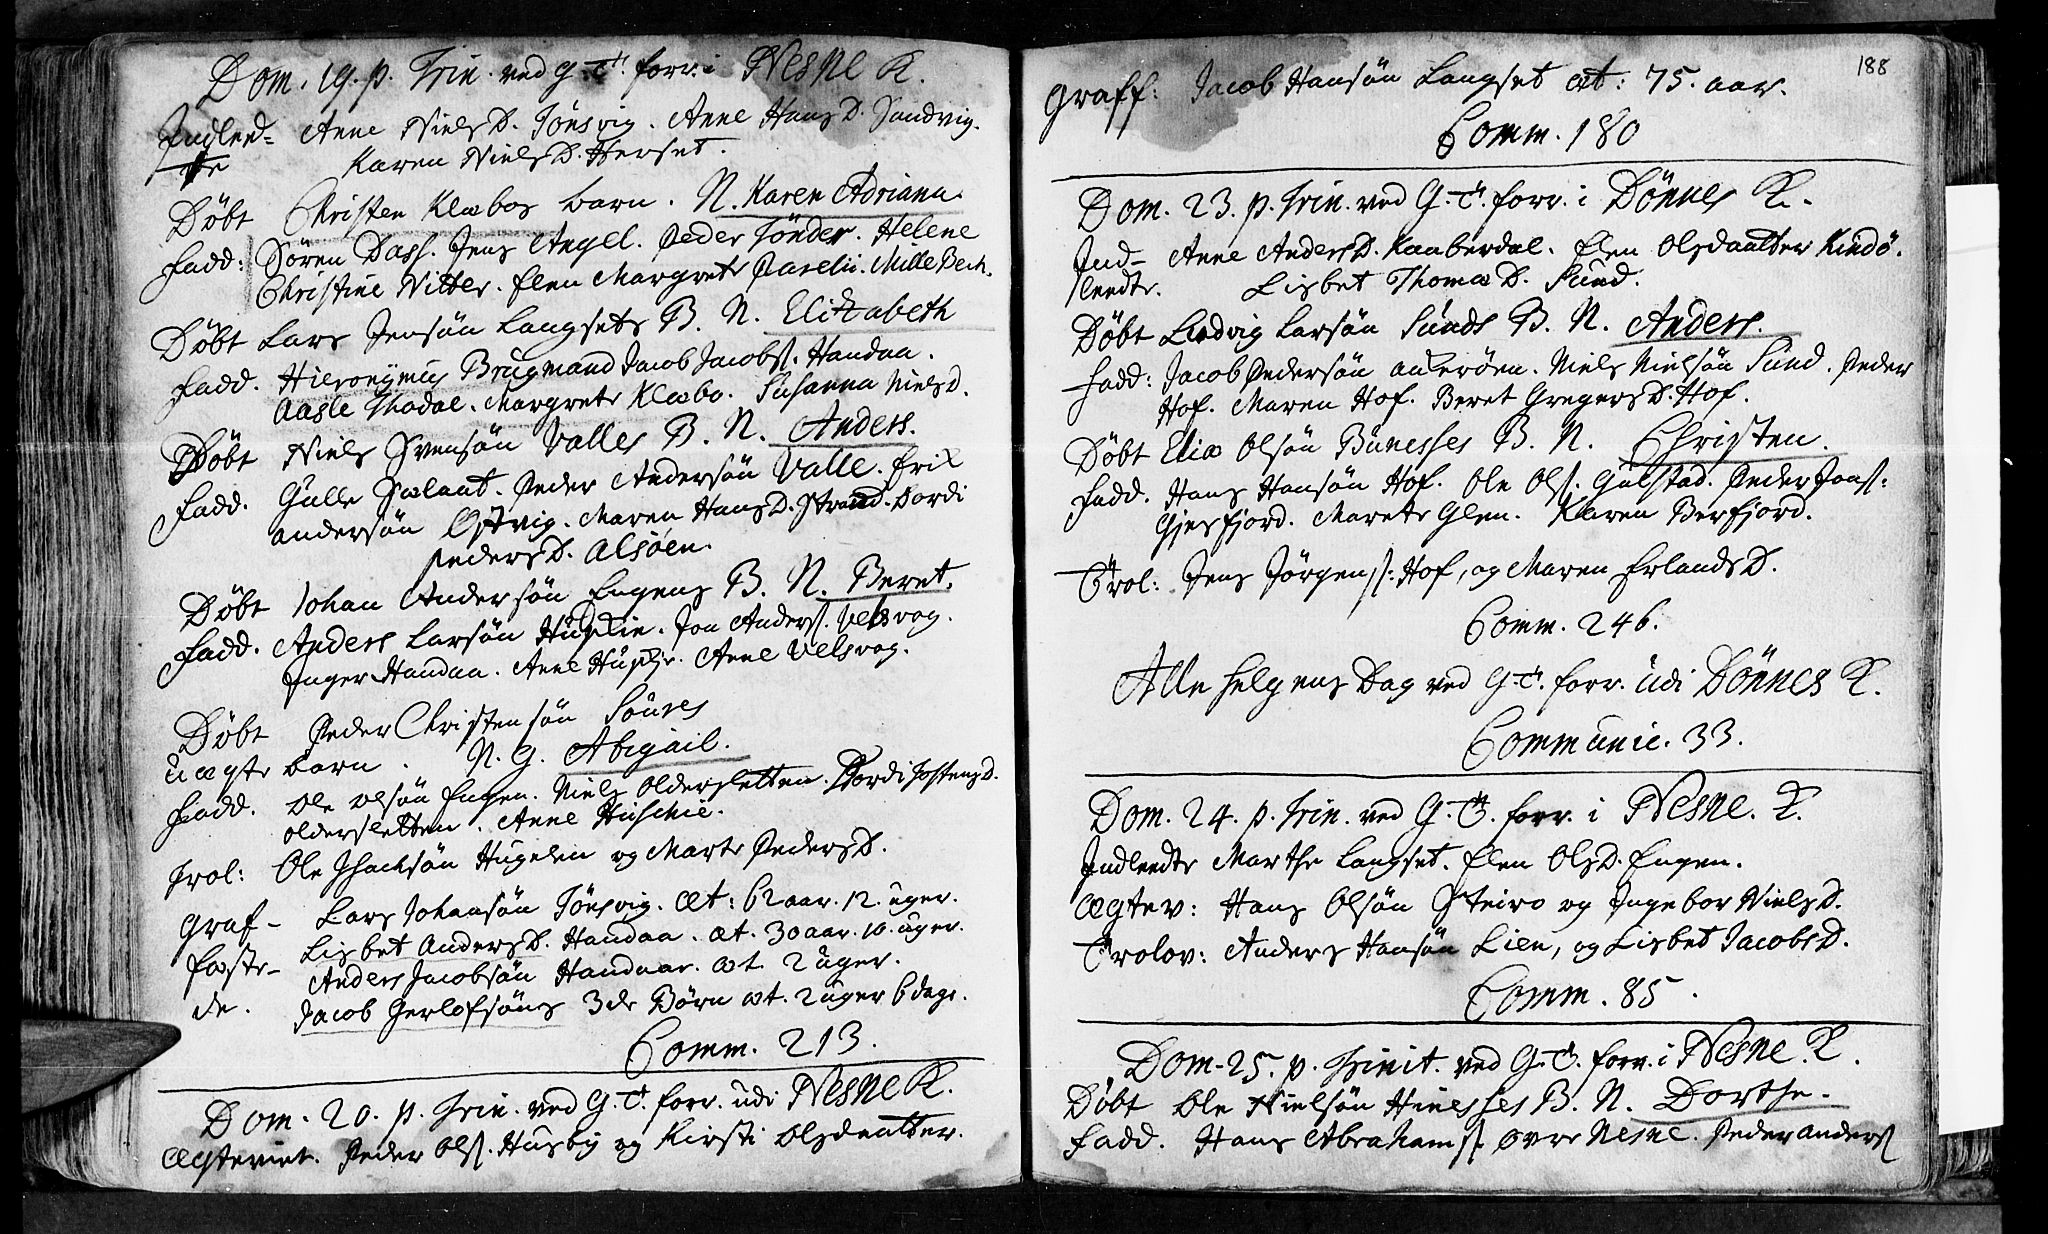 Dom. 19. p. Trin. ved G. T. forr. i Nesne K.
Indleed- Anne NielsD. Tønsvig. Anne HansD. Sandvig.
te Karen NielsD. Herset.
Døbt Christen Klæbos barn. N. Karen Adriana.
Fadd: Søren Dass. Jens Angel. Peder Sønder. Helene
Christine Nitter. Elen Margrete Parelii. Mille Bech.
Døbt Lars Jensøn Langsets B. N. Elizabeth
Fadd. Hieronymus Brugmand Jacob Jacobs. Handaa.
Aasle Thodal. Margrete Klæbo. Susanna NielsD.
Døbt Niels Svensøn Valles B. N. Anders.
Fadd. Gulle Peder Andersøn Valle. Erik
Andersøn Østvig. Maren HansD. Strand. Dordi
PedersD. Alsøen.
Døbt Johan Andersøn Engens B. N. Beret.
Fadd. Anders Larsøn Jon Anders. Velsvog.
Inger Handaa. Anne Anne Velsvog.
Døbt Peder Christensøn
uægte barn. N. G. Abigail.
Fadd. Ole Olsøn Engen. Niels Oldersletten. Dordi JostensD.
Oldersletten. Anne Huschie.
Trol: Ole Isacksøn Hugelen og Marte PedersD.
Graf- Lars Johansøn Tønsvig. Æt: 62 aar. 12. uger.
fæste- Lisbet AndersD. Handaa. æt. 30 aar. 10. uger.
de. Anders Jacobsøn Handaar. æt. 2 uger.
Jacob Gerlofsøns 3de Børn æt. 2 uger 6 dage.
Comm. 213.
Dom. 20. p. Trin. ved G. T. forr. udi Nesne K.
Ægteviet. Peder Ols. Husby og Kirsti Olsdaatter.
188
Graff: Jacob Hansøn Langset æt: 75. aar.
Comm. 180
Dom. 23. p. Trin. ved G. T. forr. i Dønnes K.
Ind- Anne AndersD. Kaaberdal. Elen Olsdaatter Kindø.
leedte. Lisbet ThomæD. Sund.
Døbt Ludvig Larsøn Sunds B. N. Anders.
Fadd: Jacob Pedersøn Niels Nielsøn Sund. Peder
Hof. Maren Hof. Beret GregersD. Hof.
Døbt Elias Olsøn Bunesses B. N. Christen.
Fadd. Hans Hansøn Hof. Ole Ols. Gulstad. Peder Jons:
Gjesfjord. Marete Glen. Karen Berfjord.
Trol: Jens Jørgens: Hof, og Maren ErlandsD.
Comm. 246.
Alle helgens Dag ved G. T. forr. udi Dønnes K.
Communic. 33.
Dom. 24. p. Trin. ved G. T. forr. i Nesne. K.
Indleedte Marthe Langset. Elen OlsD. Engen.
Ægtev: Hans Olsøn Steiro og Ingebor NielsD.
Trolov: Anders Hansøn Lien, og Lisbet JacobsD.
Comm. 85.
Dom. 25. p. Trinit. ved G. T. forr. i Nesne. K.
Døbt Ole Nielsøn Hinesses B. N. Dorthe.
Fadd. Hans Abrahams. Øvre Nesne. Peder Anders